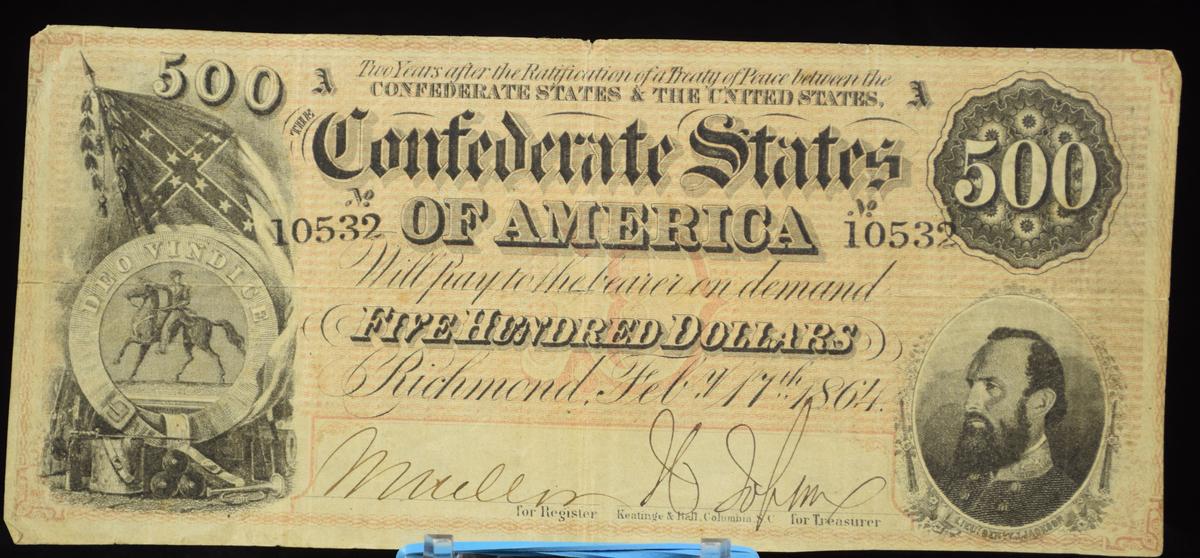 500
A Two Years after the Ratification of a Treaty of Peace between the A
CONFEDERATE STATES & THE UNITED STATES,
THE Confederate States
500
No No
10532 OF AMERICA 10532
DEO VINDICE
Will pay to the bearer on demand
FIVE HUNDRED DOLLARS
Richmond, Feby 17th 1864.
for Register Keatinge & Ball, Columbia, S.C. for Treasurer